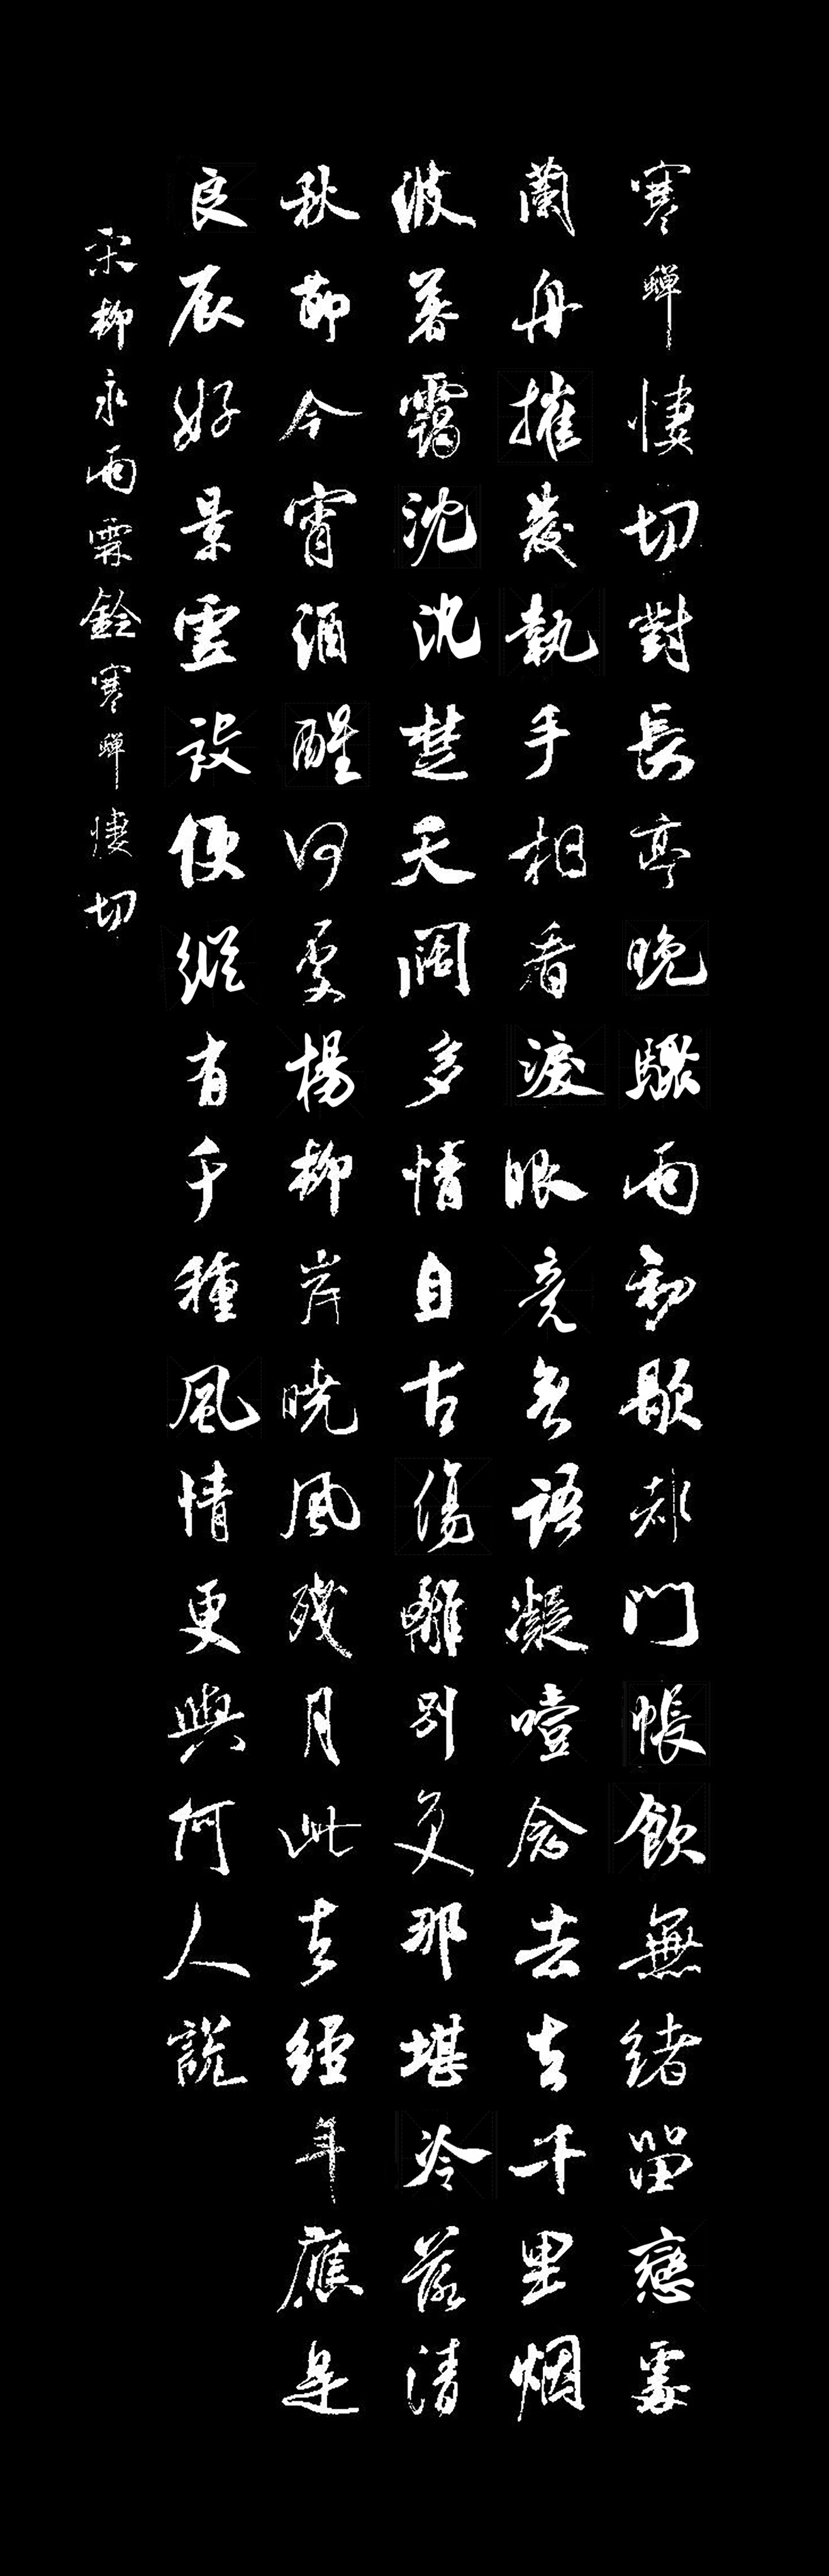 寒蟬悽切對長亭晚驟雨初歇都門帳飲無緒留戀處
蘭舟摧發執手相看淚眼竟無語凝噎念去去千里烟
波暮靄沈沈楚天闊多情自古傷離別更那堪冷落清
秋節今宵酒醒何處楊柳岸曉風殘月此去經年應是
良辰好景虛設便縱有千種風情更與何人說
宋柳永雨霖鈴寒蟬悽切